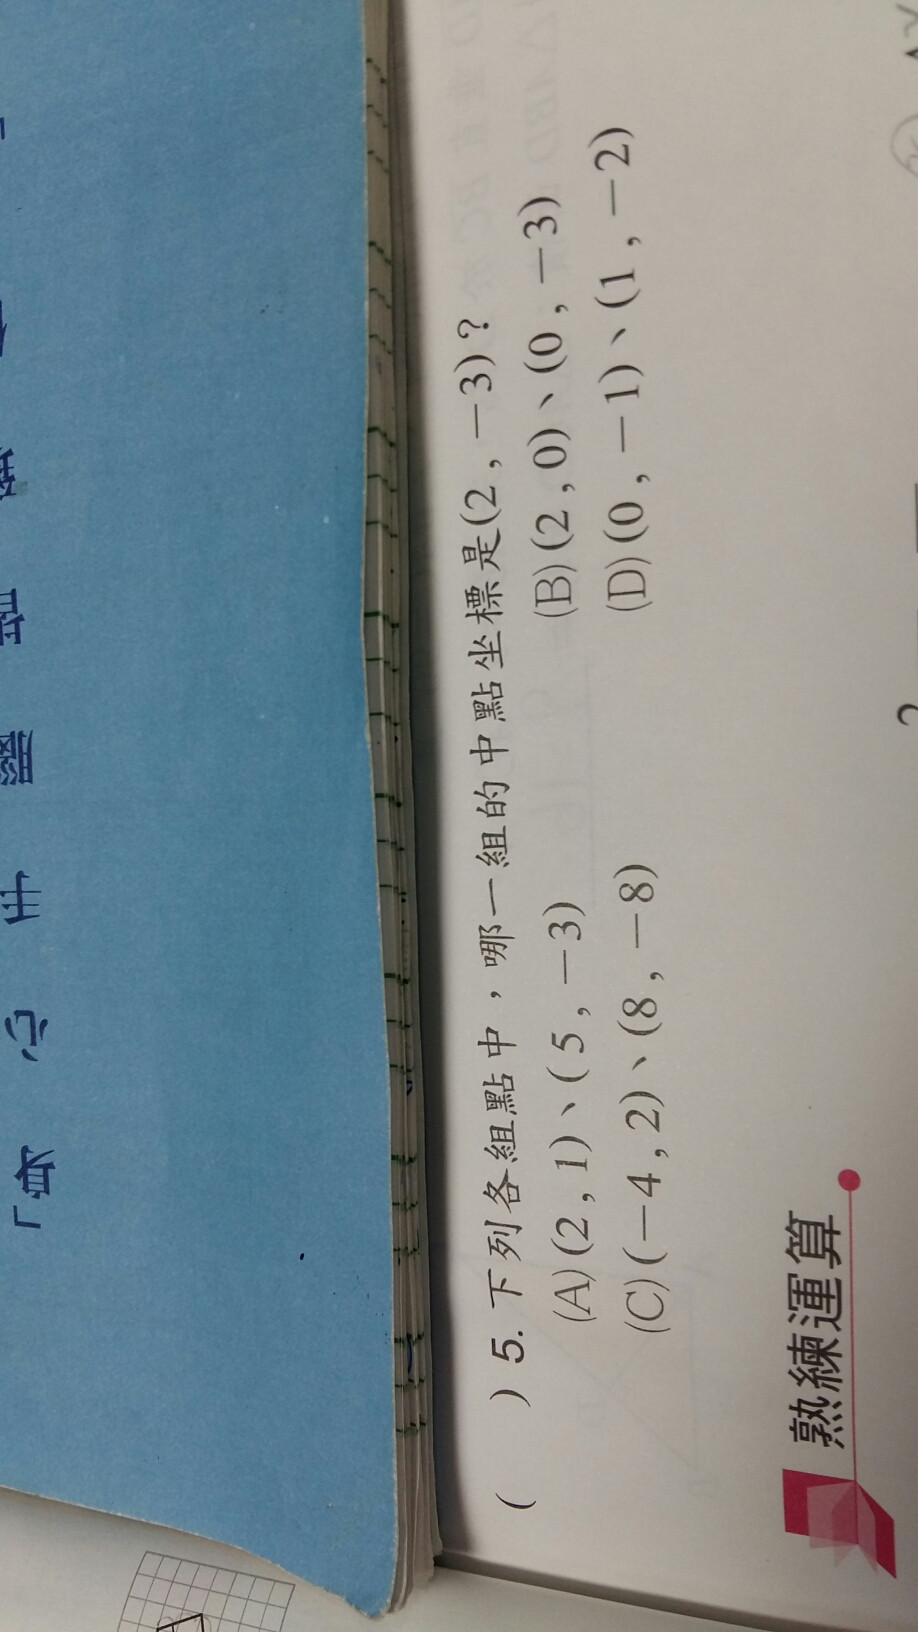 ( ) 5. 下列各組點中，哪一組的中點坐標是(2 , －3)？
(A)(2 , 1)、(5 , －3) (B)(2 , 0)、(0 , －3)
(C)(－4 , 2)、(8 , －8) (D)(0 , －1)、(1 , －2)
熟練運算